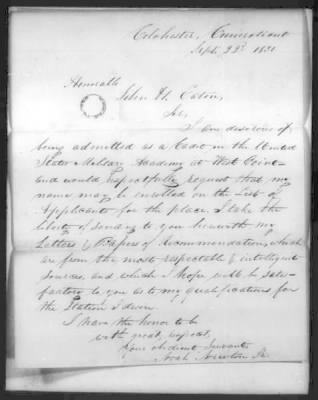 Colchester, Connecticut
Sept. 22d 1830
Honorable
John H. Eaton,
Sir,
I am desirous of
being admitted as a Cadet in the United
States Military Academy at West Point
and would respectfully request that my
name may be enrolled on the List of
Applicants for the place. I take the
liberty of sending to you herewith my
Letters & Papers of Recommendation, which
are from the most respectable & intelligent
sources, and which I hope will be satis-
factory to you as to my qualifications for
the Station I desire.
I have the honor to be
with great respect,
Your obedient Servant
Noah Newton Jr.